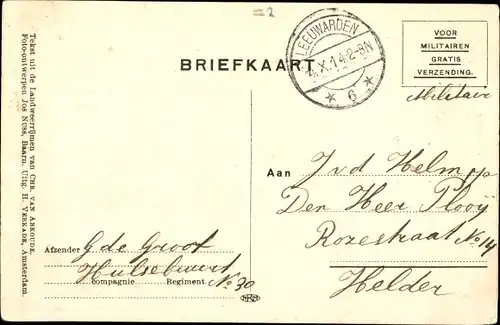 =2
LEEUWARDEN
4.X.14.2-8N
* 6 *
VOOR
MILITAIREN
GRATIS
VERZENDING.
Militair
BRIEFKAART
Tekst uit de Landweerrijmen van CHR. VAN ABKOUDE.
Foto-ontwerpen JOS NUSS, Baarn. Uitg. H. VERKADE, Amsterdam.
Aan J v d Helm op
Den Heer Plooÿ
Rozestraat No 14
Helder
Afzender G de Groot
Hulsebuurt No 30
compagnie Regiment